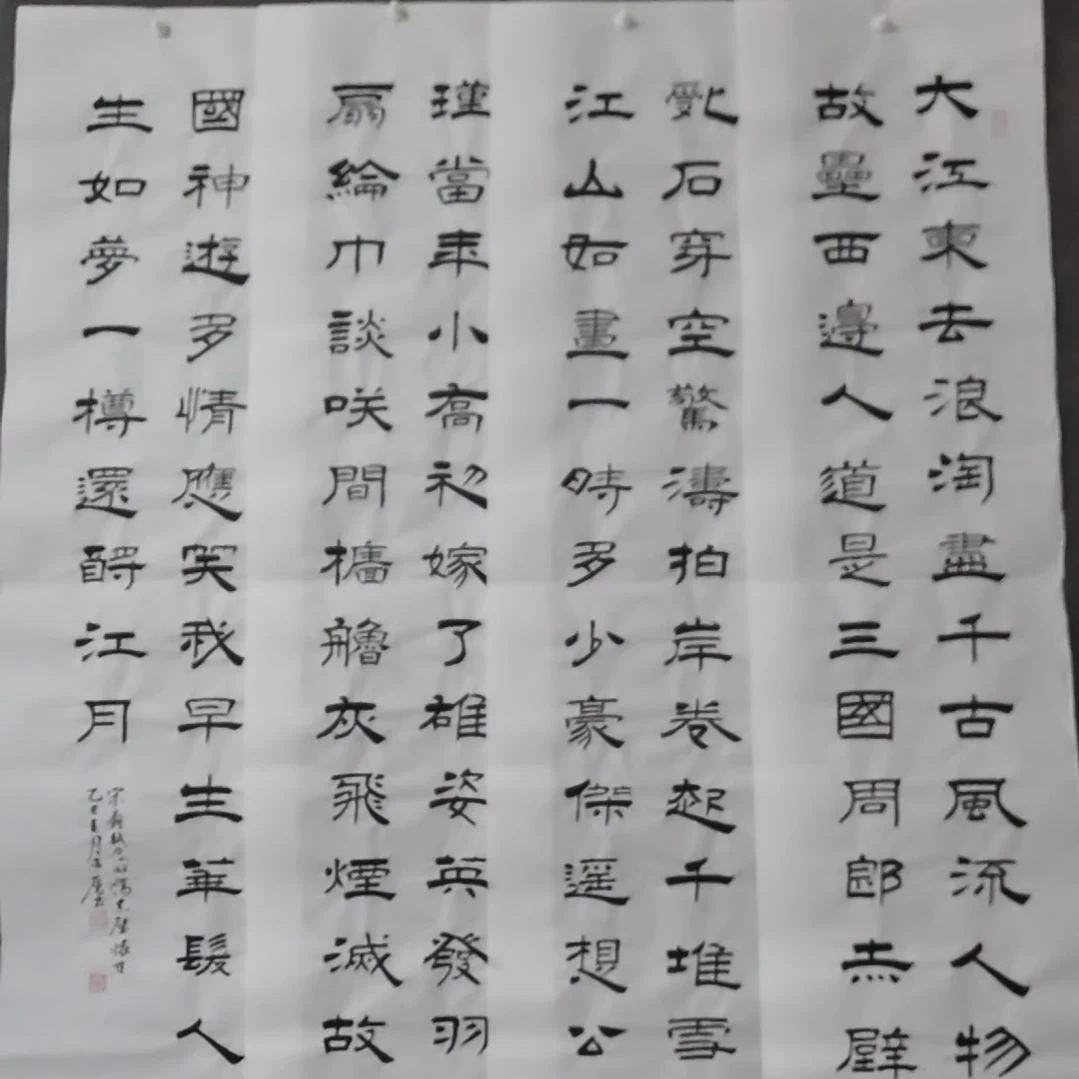 大江東去浪淘盡千古風流人物
故壘西邊人道是三國周郎赤壁
亂石穿空驚濤拍岸卷起千堆雪
江山如畫一時多少豪傑遥想公
瑾當年小喬初嫁了雄姿英發羽
扇綸巾談咲間檣艣灰飛煙滅故
國神遊多情應笑我早生華髮人
生如夢一樽還酹江月
宋蘇軾念奴嬌赤壁懷古